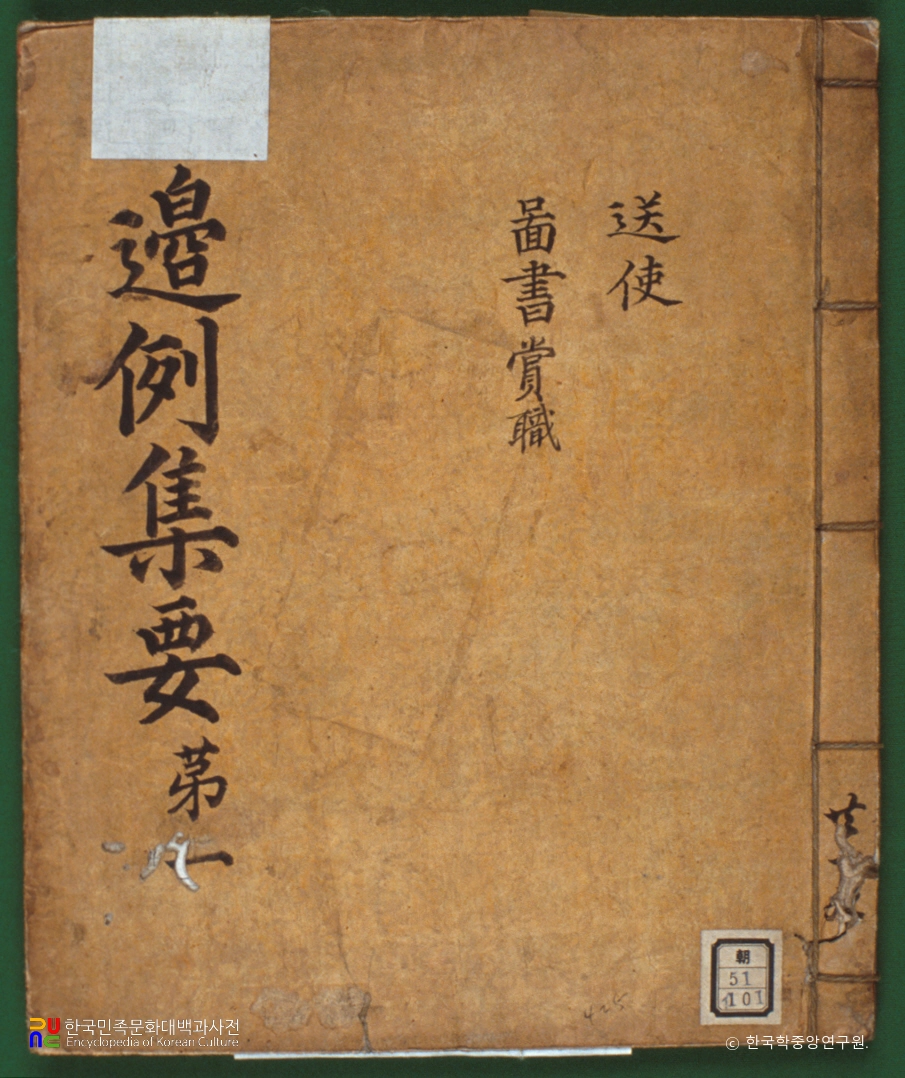 送使
啚書賞職
邊例集要 苐一
共
朝
51
101
425
한국민족문화대백과사전
Encyclopedia of Korean Culture
© 한국학중앙연구원.